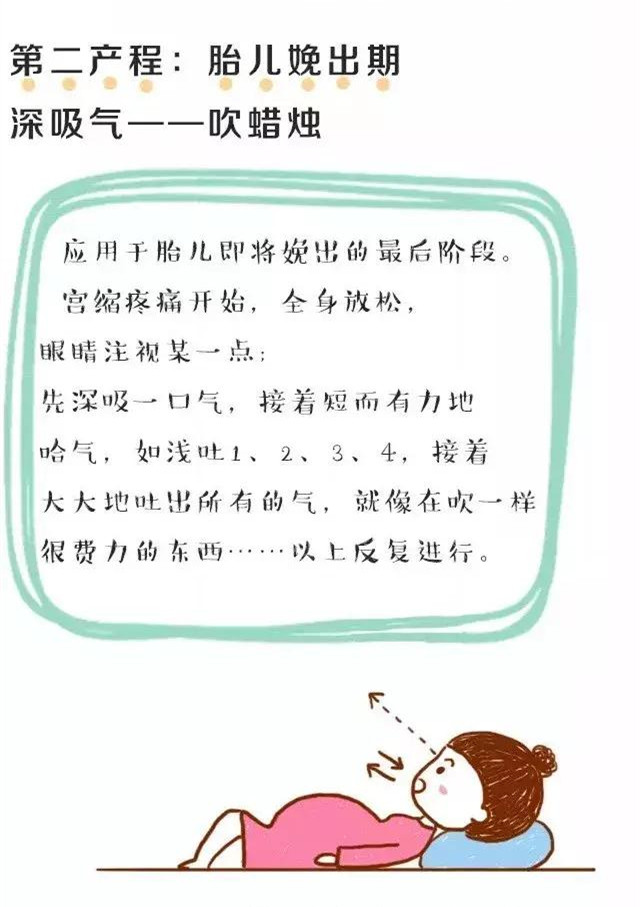 第二产程：胎儿娩出期
深吸气——吹蜡烛
应用于胎儿即将娩出的最后阶段。
宫缩疼痛开始，全身放松，
眼睛注视某一点；
先深吸一口气，接着短而有力地
哈气，如浅吐1、2、3、4，接着
大大地吐出所有的气，就像在吹一样
很费力的东西……以上反复进行。